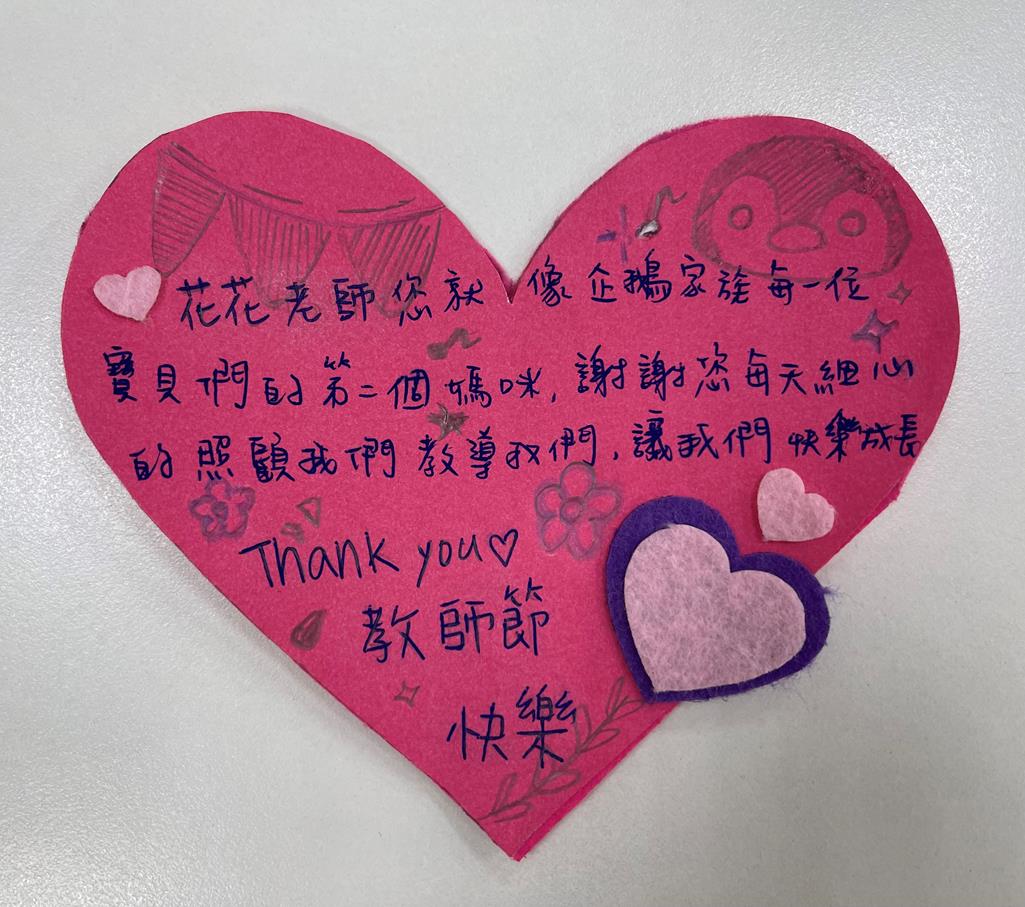 花花老師您就像企鵝家族每一位
寶貝們的第二個媽咪,謝謝您每天細心
的照顧我們教導我們,讓我們快樂成長
Thank you♡
教師節
快樂